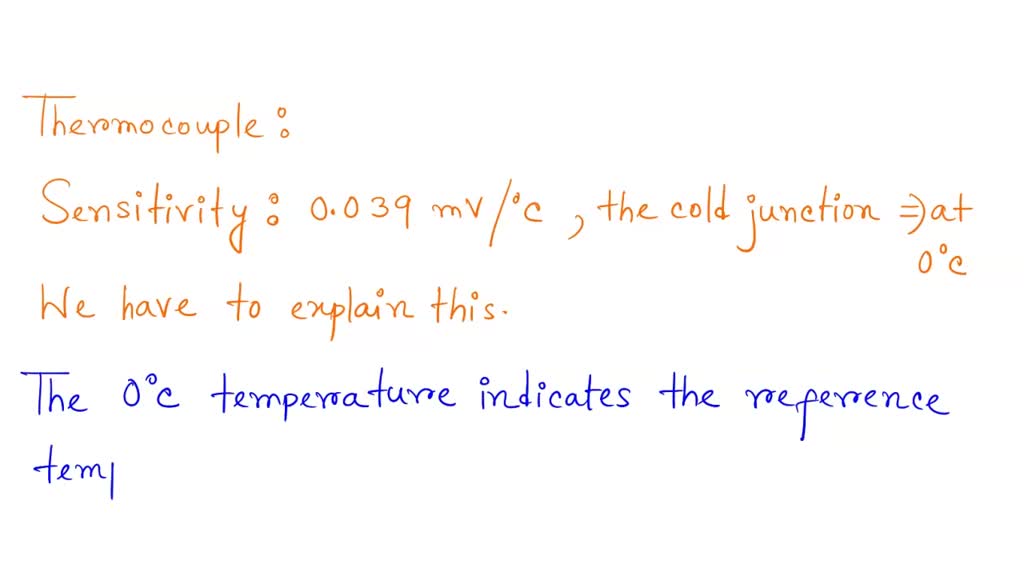 Thermocouple:
Sensitivity: 0.039 mV/°C, the cold junction ⇒ at
0°C
We have to explain this.
The 0°C temperature indicates the reference
temp